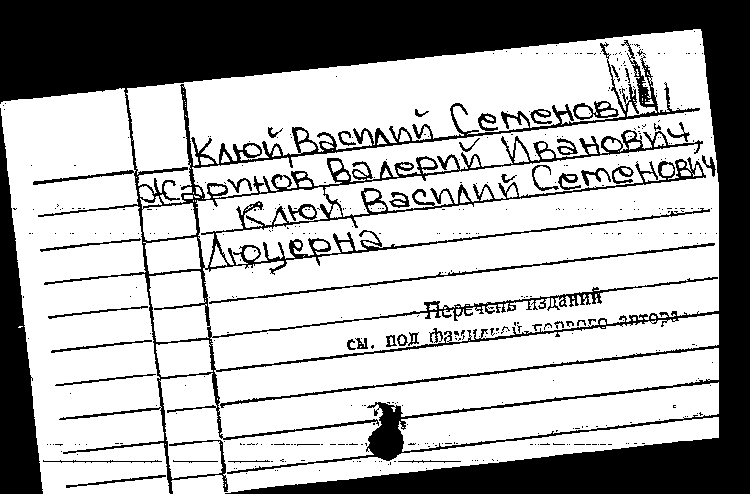 Клюй, Василий Семенович
Жаринов, Валерий Иванович,
Клюй, Василий Семенович
Люцерна.
Перечень изданий
см. под фамилией первого автора